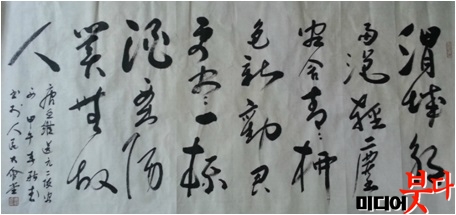 渭城朝
雨浥輕塵
客舍青々柳
色新勸君
更盡一杯
酒西出陽
關無故
人
唐王維送元二使安
西 甲午年
於人民大會堂
미디어붓다